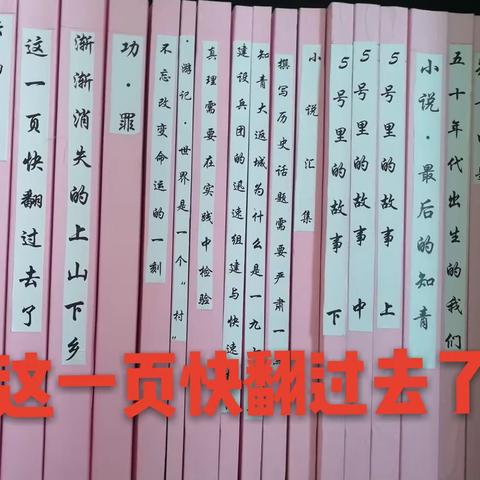 这一页快翻过去了
渐渐消失的上山下乡
功·罪
不忘改变命运的一刻
·游记·世界是一个"村"
真理需要在实践中检验
建设兵团的迅速组建与快速
知青大返城为什么是一九七
撰写历史话题需要严肃一
小说汇集
5号里的故事 下
5号里的故事 中
5号里的故事 上
小说·最后的知青
五十年代出生的我们
这一页快翻过去了